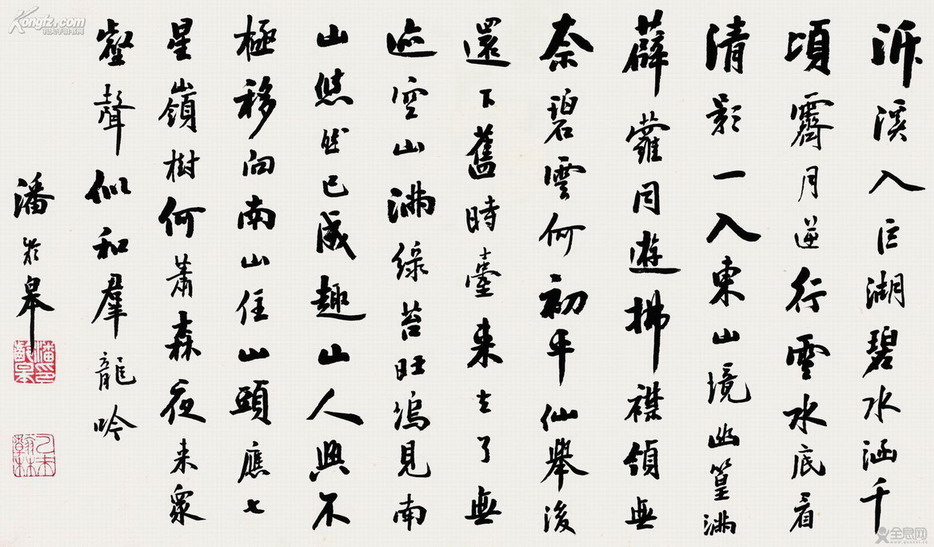 泝溪入巨湖碧水涵千
頃霽月逆行雲水底看
清影一入東山境幽篁滿
薜蘿同遊拂襟領無
奈碧雲何初平仙舉後
還下舊時臺來去了無
迹空山滿綠苔旺塢見南
山悠然已成趣山人興不
極移向南山住山頭應七
星嶺樹何蕭森夜來眾
壑聲似和羣龍吟
潘齡皋
Kongfz.com
全息网